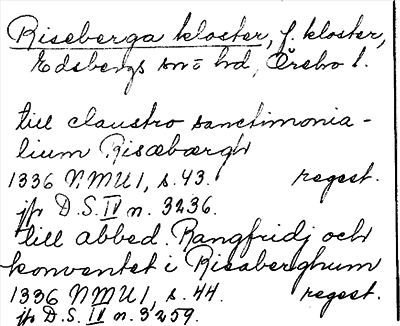 Riseberga kloster, f. kloster,
Edsbergs sn o hd, Örebro l.
till claustro sanctimonia-
lium Risæbærgh
1336 NMU 1, s. 43. regest.
jfr D.S. IV n. 3236.
till abbed. Rangfridj och
konventet i Risaberghum
1336 NMU 1, s. 44. regest.
jfr D.S. IV n. 3259.